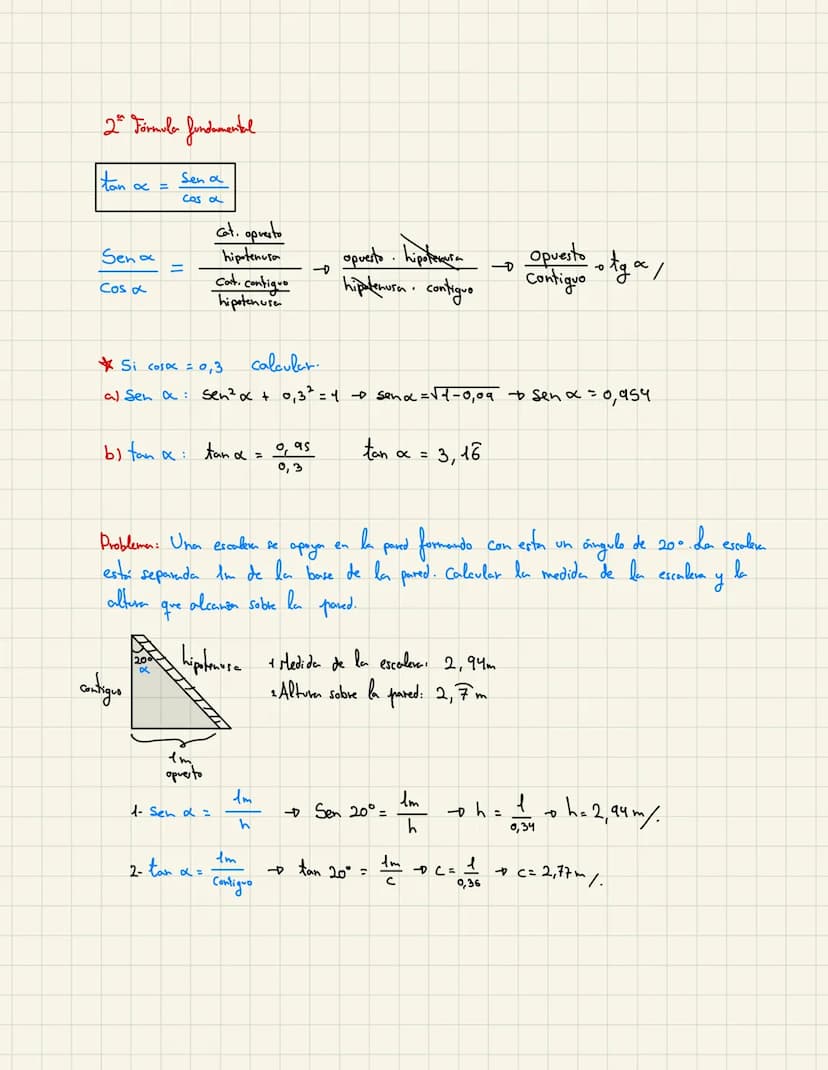 2ª Fórmula fundamental
tan α = sen α / cos α
Sen α / Cos α = (Cat. opuesto / hipotenusa) / (Cat. contiguo / hipotenusa) → opuesto . hipotenusa / hipotenusa . contiguo → opuesto / Contiguo → tg α /
* Si cos α = 0,3 calcular.
a) Sen α : sen² α + 0,3² = 1 → sen α = √1-0,09 → sen α = 0,954
b) tan α : tan α = 0,95 / 0,3 tan α = 3,16
Problema: Una escalera se apoya en la pared formando con esta un ángulo de 20°. La escalera
está separada 1m de la base de la pared. Calcular la medida de la escalera y la
altura que alcanza sobre la pared.
20°
α
hipotenusa
contiguo
1 Medida de la escalera: 2,94m
2 Altura sobre la pared: 2,7̂ m
1m
opuesto
1- Sen α = 1m / h → Sen 20° = 1m / h → h = 1 / 0,34 → h = 2,94 m/.
2- tan α = 1m / Contiguo → tan 20° = 1m / c → c = 1 / 0,36 → c = 2,77 m/.